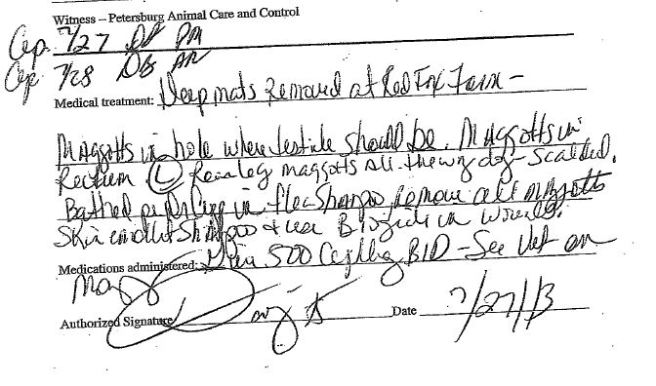 Witness – Petersburg Animal Care and Control
Cep 7/27 PM
Cep 7/28
Medical treatment: Deep mats removed at Red Fox Farm –
Maggotts in hole where testicle should be. Maggotts in
Rectum (L) Rear leg maggotts all the way dog - Scalded.
Bathed in flea Shampoo remove all maggotts
Skin Shampoo + use in wounds.
Medications administered: 500 BID – See Vet on
Authorized Signature Date 7/27/13